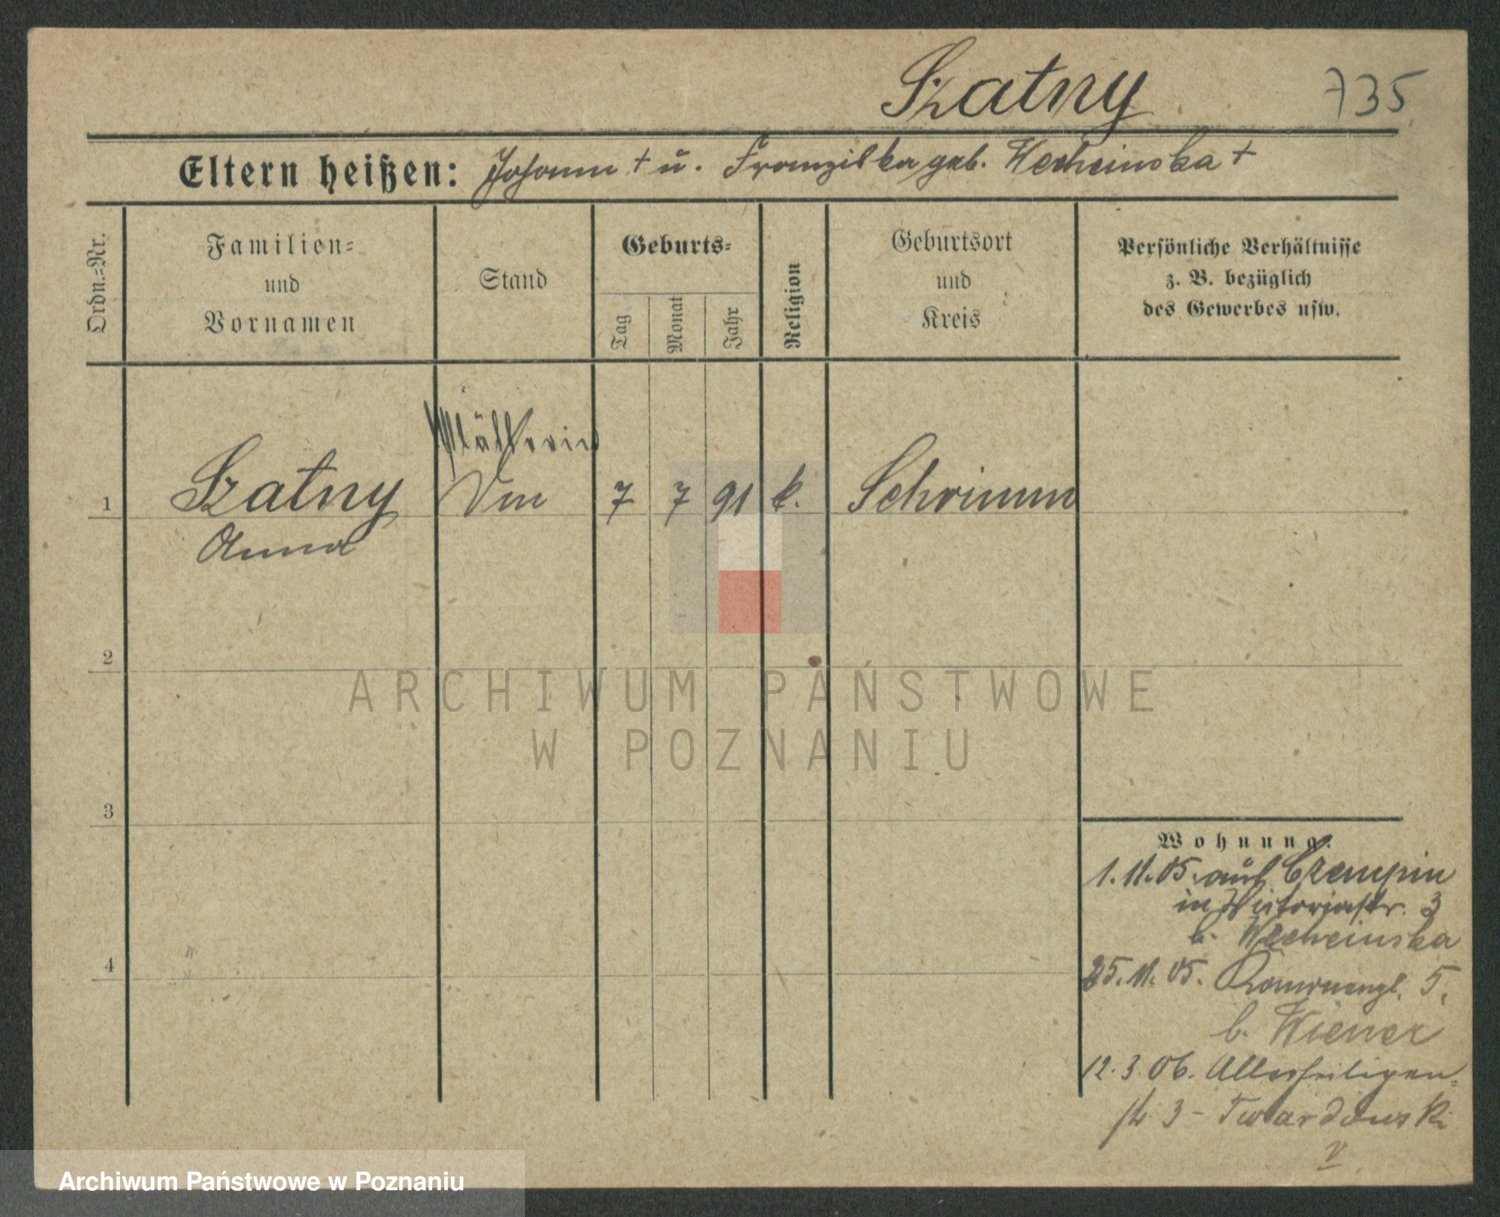 Szatny 735
Eltern heißen: Johann † u. Franziska geb. Wecheinska †
Ordn.=Nr.
Familien=
und
Vornamen
Stand
Geburts=
Tag
Monat
Jahr
Religion
Geburtsort
und
Kreis
Persönliche Verhältnisse
z. B. bezüglich
des Gewerbes usw.
1 Szatny 7 7 91 k. Schrimm
Anna
2
3
4
Wohnung.
1.11.05. aus Czempin
in Victoriastr. 3
b. Wecheinska
25.11.05. 5.
b. Wiener
12.3.06. Allerheiligen-
str 3 - Twardowski
ARCHIWUM PAŃSTWOWE
W POZNANIU
Archiwum Państwowe w Poznaniu